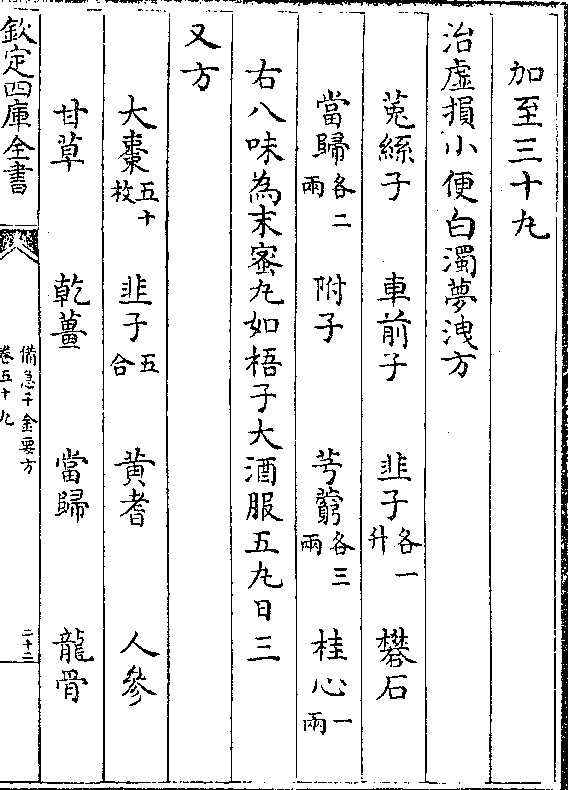 加至三十丸
治虛損小便白濁夢洩方
菟絲子 車前子 韭子各一升 礬石
當歸各二兩 附子 芎藭各三兩 桂心一兩
右八味為末蜜丸如梧子大酒服五丸日三
又方
大棗五十枚 韭子五合 黄耆 人參
甘草 乾薑 當歸 龍骨
欽定四庫全書
備急千金要方
卷五十九
二十二